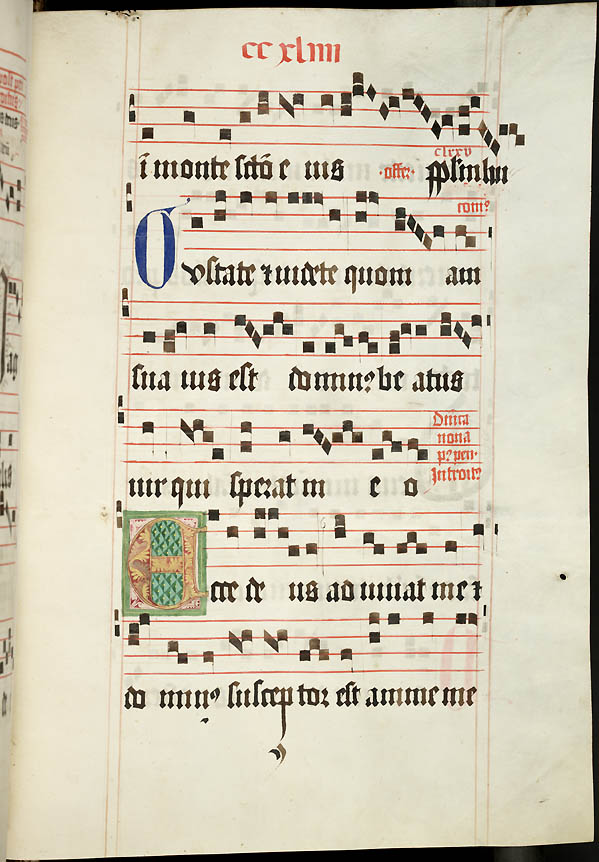 cc xliiii
ī monte sctō e ius ·offe· clxxv
comꝯ
Gvstate ⁊ uidete quom am
sua uis est dominꝯ be atus
uir qui sperat in e o
Dn̄ica
nona
pꝰ pen·
Introitꝰ
Ecce de us ad iuuat me ⁊
do minꝯ suscep tor est anime me
e